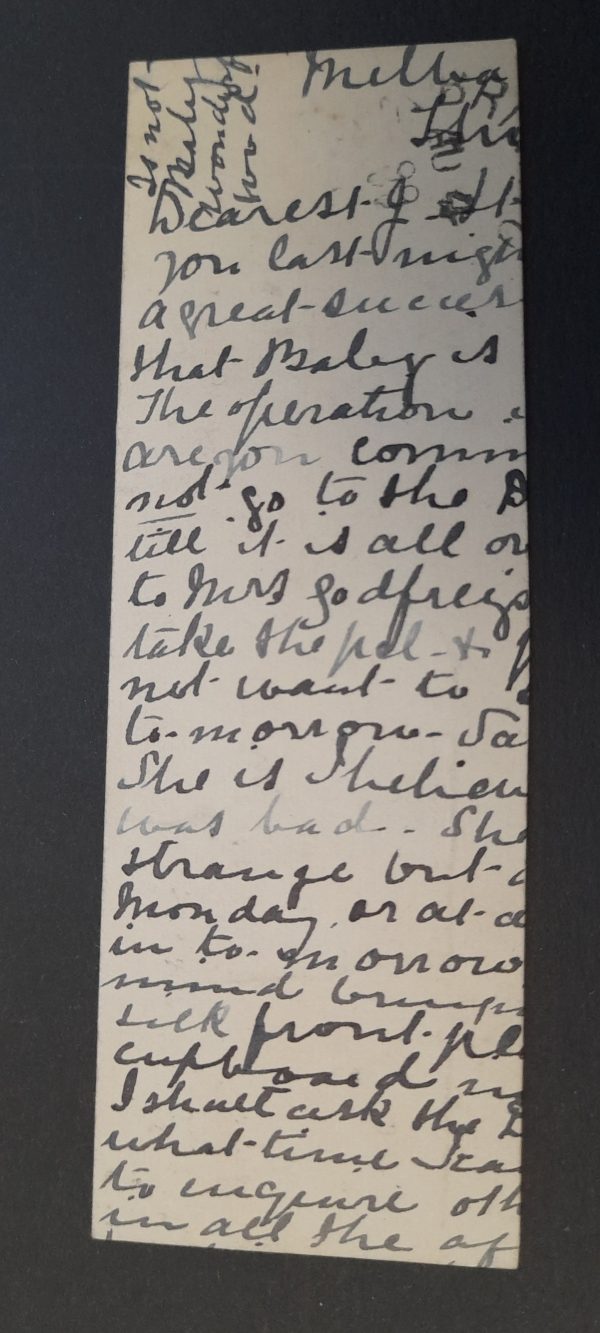 Is not
Baby
wonderf
good.
Melba
Dearest J. It
you last nigh
a great succes
that Baby is
The operation
are you comin
not go to the D
till it is all ov
to Mrs Godfreys
take the pel &
not want to
to-morrow - Sa
She is I believ
was bad. She
strange but
Monday, or at
in to-morrow
mind bringin
silk front ple
cupboard
I shall ask the D
what time I ca
to enquire oth
in all the af